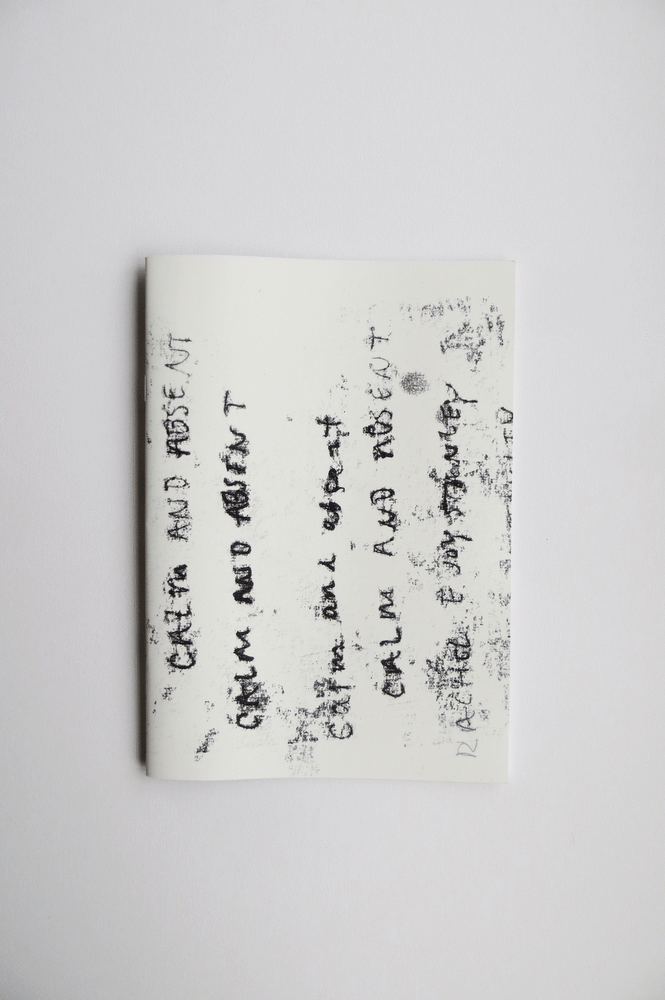 CALM AND ABSENT
CALM AND ABSENT
Calm and absent
CALM AND ABSENT
RACHEL E JOY STANLEY